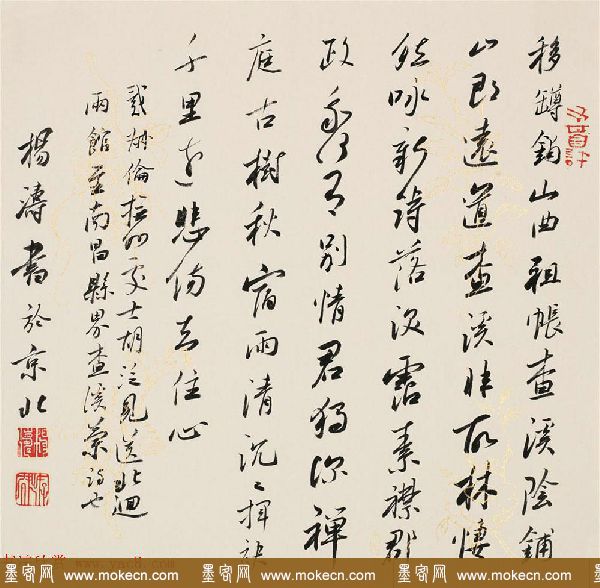 移罇山曲祖帳查溪陰鋪
山即遠道查溪非故林悽
然咏新詩落淚霑素襟郡
政我何有別情君獨深禪
庭古樹秋宿雨清沉〻揮袂
千里遠悲傷去住心
戴叔倫撫州處士胡泛見送北迴
兩館至南昌縣界查溪蘭也
楊濤書於京北
墨客网 www.mokecn.com 墨客网 www.mokecn.com 墨客网 www.mokecn.com